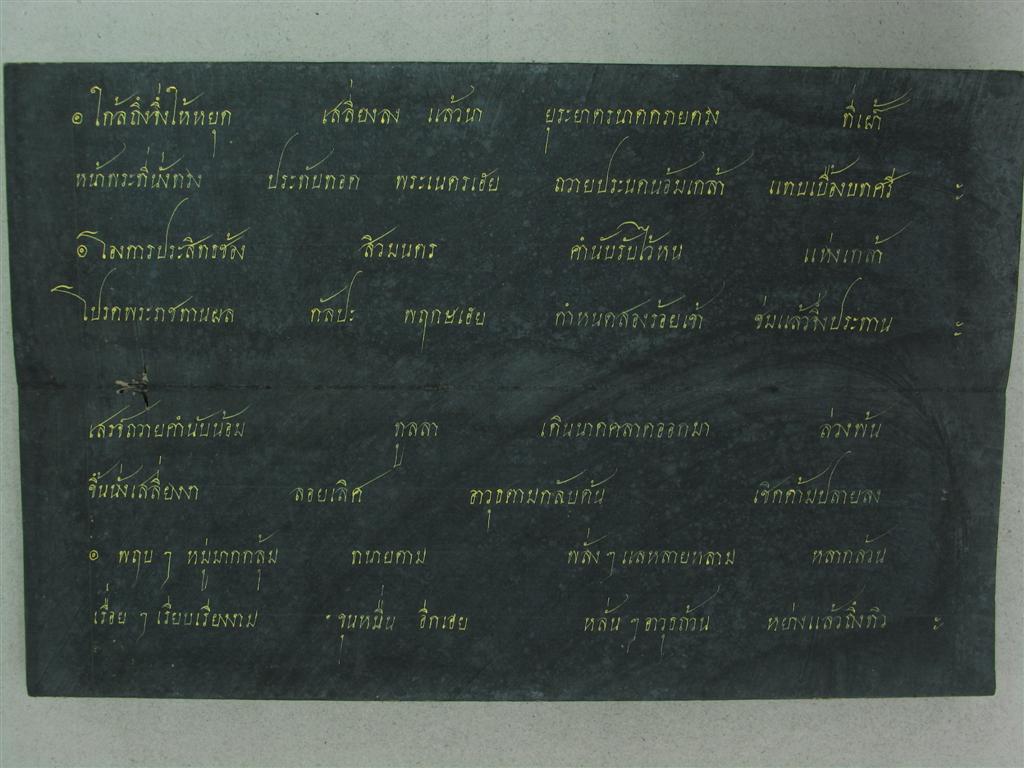 ๏ ใกล้ถึงจึ่งให้หยุด เสลี่ยงลง แล้วนา ยุระยาตรนาดกรายตรง ที่เฝ้า
หน้าพระที่นั่งทรง ประทับทอด พระเนตรเฮย ถวายประนตน้อมเกล้า แทบเบื้องบทศรี ฯะ
๏ โองการประสิทธซ้อง สิวมนตร คำนับรับไว้หน แห่งเกล้า
โปรดพระราชทานผล กัลปะ พฤกษเฮย กำหนดสองร้อยเข้า ช่มแล้วจึ่งประทาน ฯะ
เสรจ์ถวายคำนับน้อม ทูลลา เดินนาดคลาดออกมา ล่วงพ้น
ขึ้นนั่งเสลี่ยงงา ลอยเลิศ อาวุธตามกลับต้น เชิดด้ามปลายลง
๏ พฤบ ๆ หมู่มากกลุ้ม ทนายตาม พลั่ง ๆ แลหลายหลาม หลากล้วน
เรื่อย ๆ เรียบเรียงงาม ขุนหมื่น อีกเฮย หลั่น ๆ อาวุธถ้วน หย่างแล้วถึงทิว ฯะ